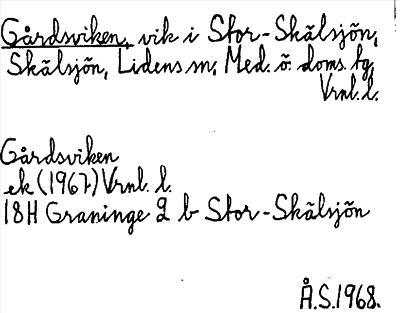 Gårdsviken, vik i Stor-Skälsjön,
Skälsjön, Lidens sn, Med. ö. doms. tg,
Vrnl. l.
Gårdsviken
ek (1967) Vrnl. l.
18H Graninge 2 b Stor-Skälsjön
Å.S. 1968.